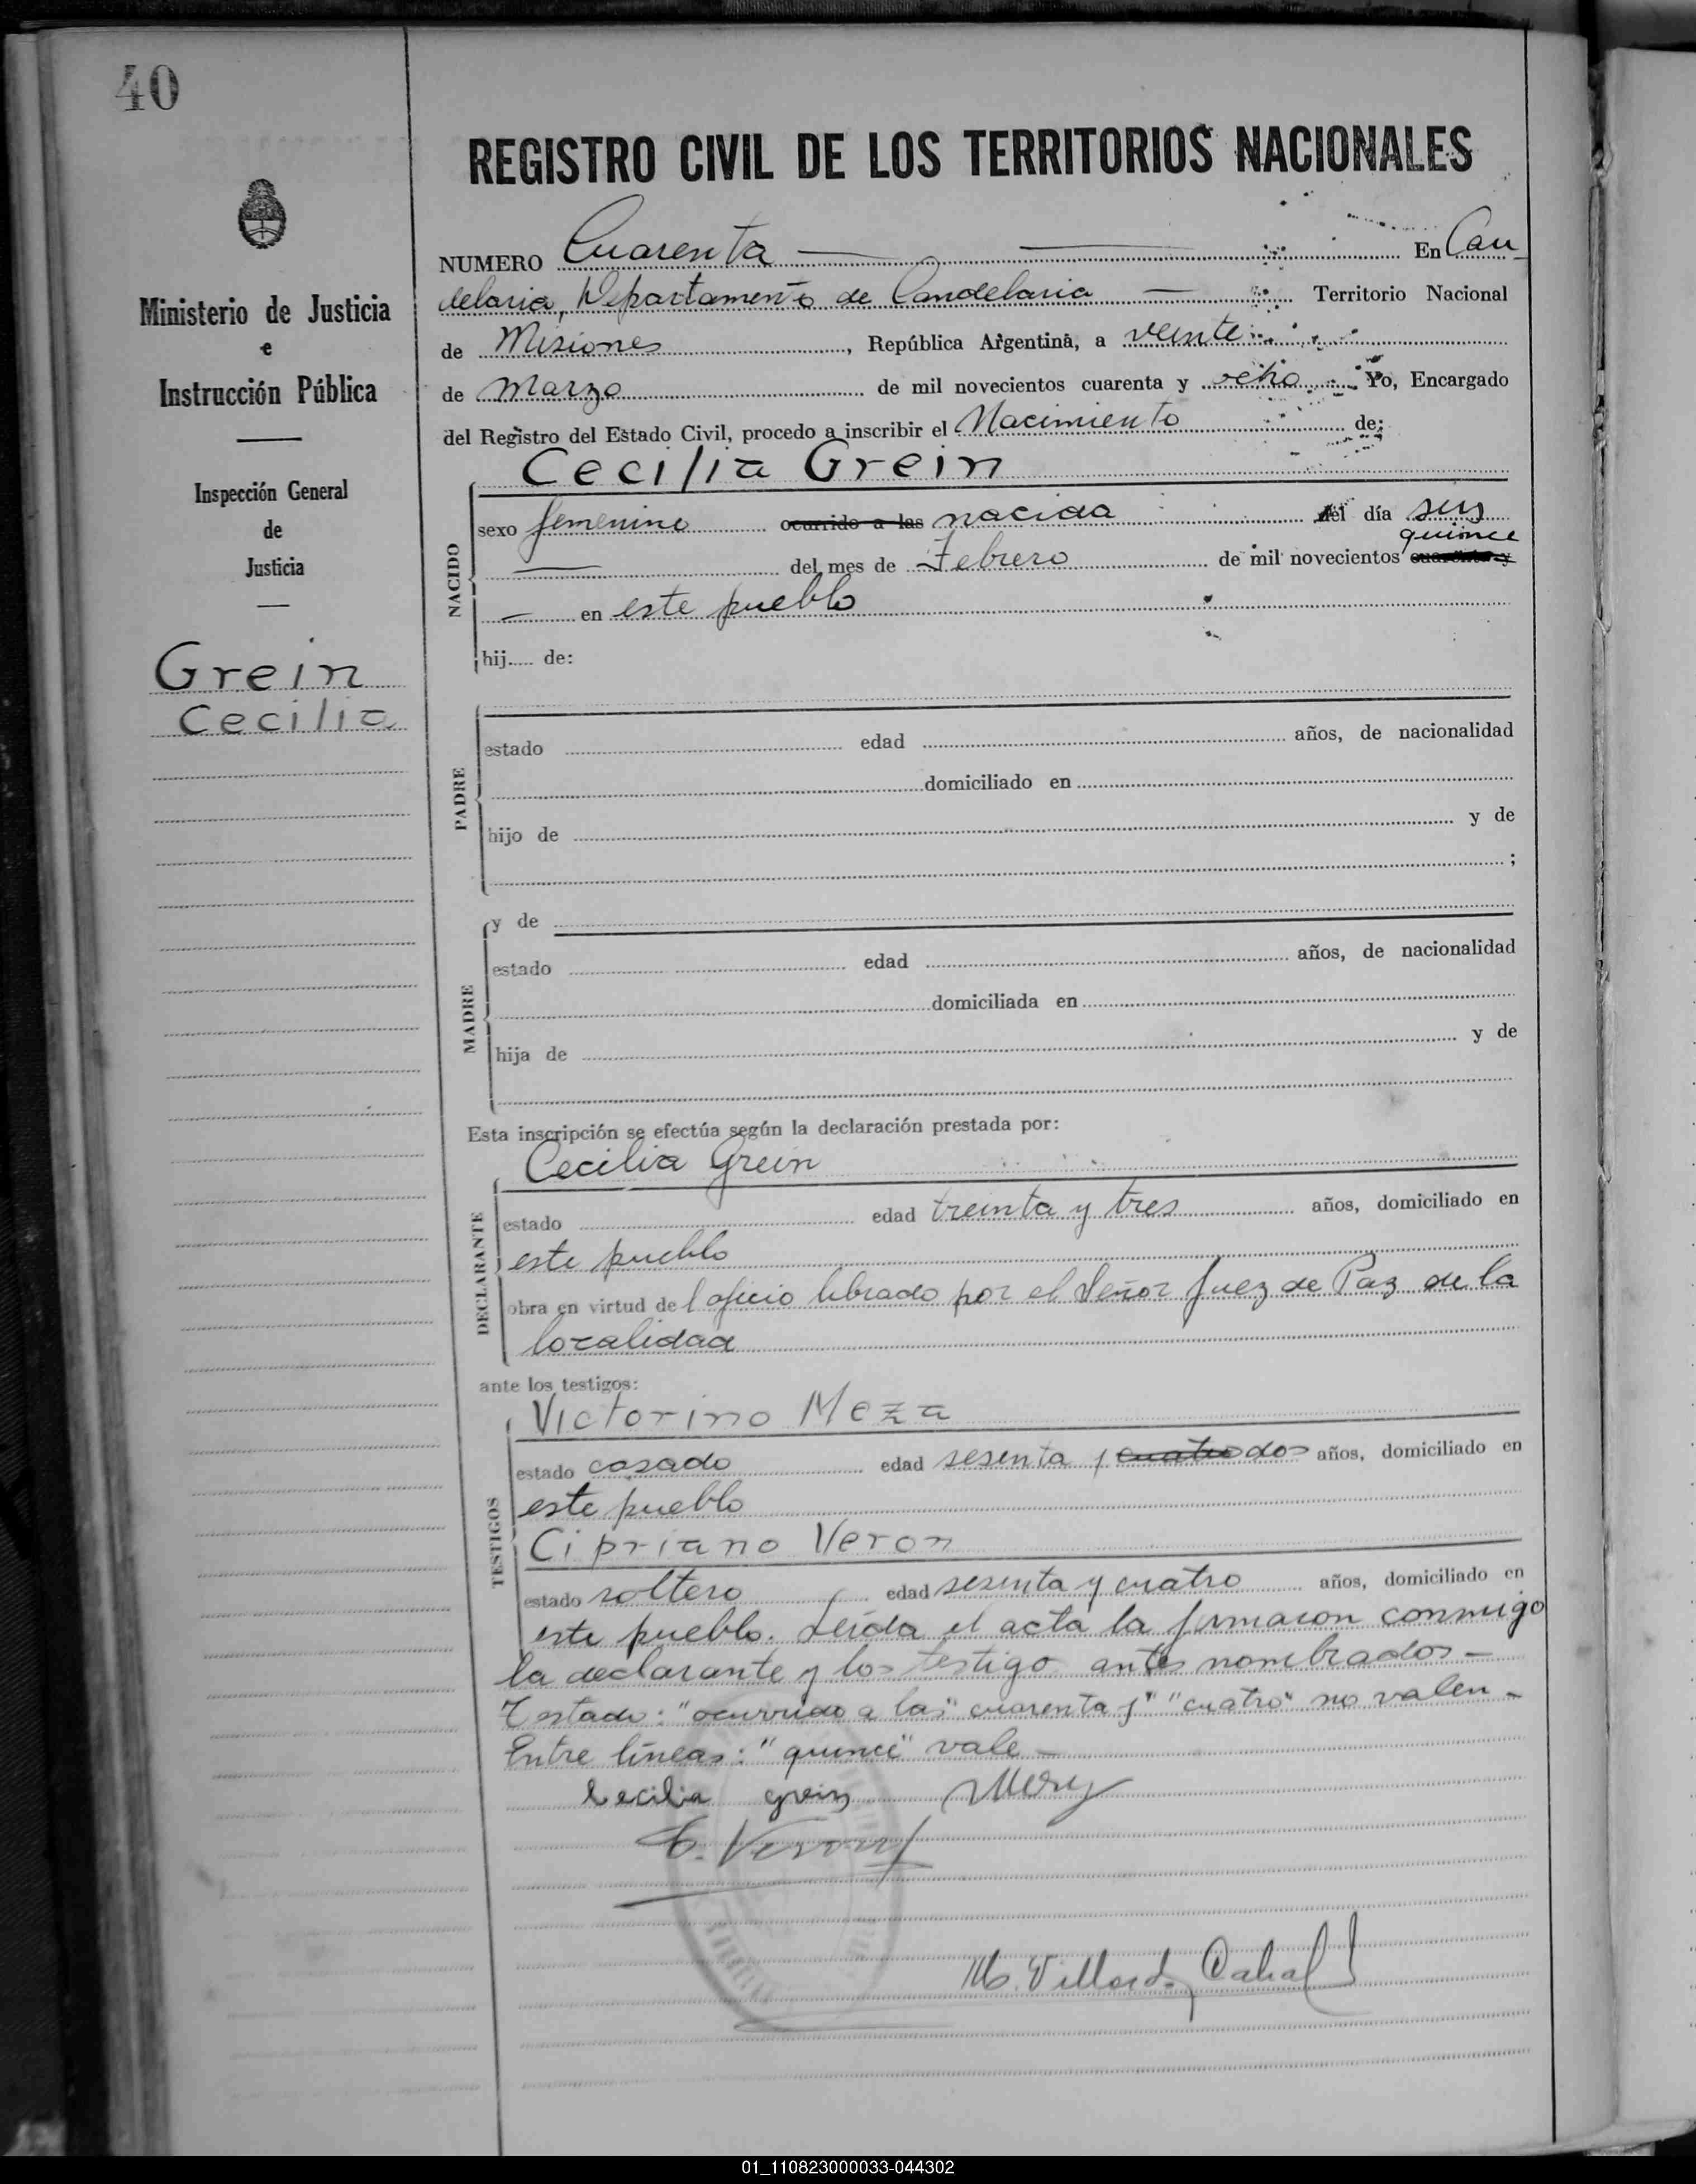 40
REGISTRO CIVIL DE LOS TERRITORIOS NACIONALES
Ministerio de Justicia
e
Instrucción Pública
Inspección General
de
Justicia
Grein
Cecilia
NUMERO Cuarenta — En Can
delaria, Departamento de Candelaria — Territorio Nacional
de Misiones, República Argentina, a veinte
de Marzo de mil novecientos cuarenta y ocho. Yo, Encargado
del Registro del Estado Civil, procedo a inscribir el Nacimiento de:
Cecilia Grein
NACIDO
sexo femenino ocurrido a las nacida del día seis
quince
— del mes de Febrero de mil novecientos cuarenta y
— en este pueblo
hij..... de:
PADRE
estado edad años, de nacionalidad
domiciliado en
hijo de y de
;
MADRE
y de
estado edad años, de nacionalidad
domiciliada en
hija de y de
Esta inscripción se efectúa según la declaración prestada por:
Cecilia Grein
DECLARANTE
estado edad treinta y tres años, domiciliado en
este pueblo
obra en virtud del oficio librado por el Señor Juez de Paz de la
localidad
ante los testigos:
Victorino Meza
TESTIGOS
estado casado edad sesenta y cuatro dos años, domiciliado en
este pueblo
Cipriano Veron
estado soltero edad sesenta y cuatro años, domiciliado en
este pueblo. Leída el acta la firmaron conmigo
la declarante y los testigo antes nombrados –
Testado: "ocurrido a las" "cuarenta y" "cuatro" no valen –
Entre líneas: "quince" vale –
Cecilia grein
C. Veron
01_110823000033-044302